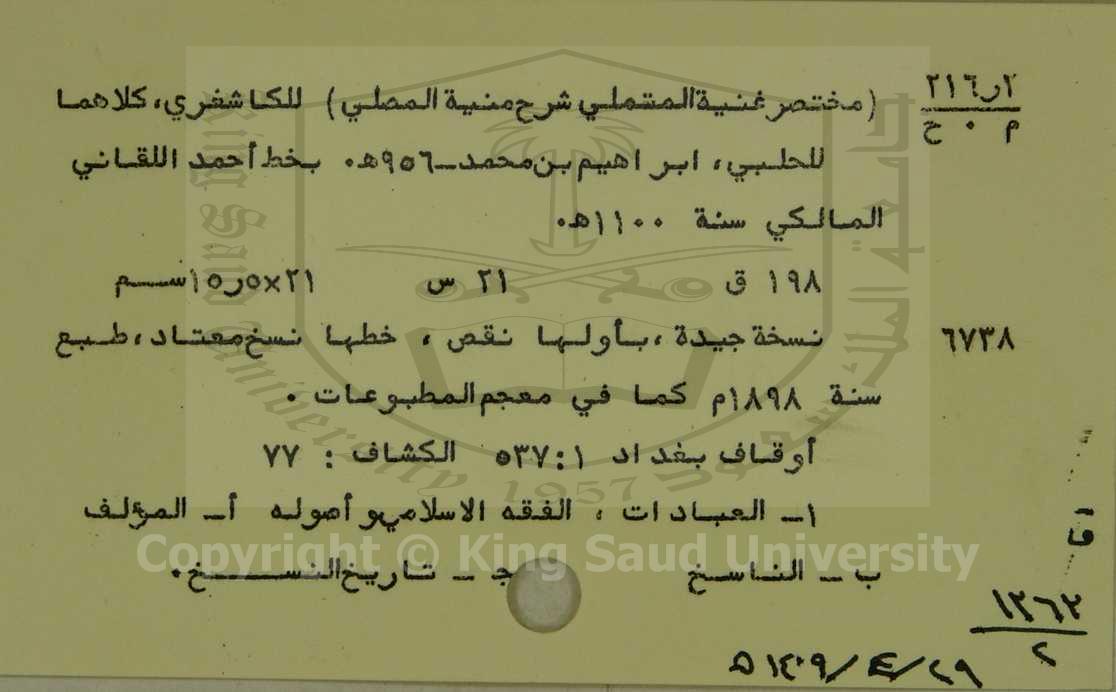 ٢١٦ر٢ (مختصر غنية المتملي شرح منية المصلي) للكاشغري، كلاهما
م ٠ ح
للحلبي، ابراهيم بن محمد ـ ٩٥٦هـ٠ بخط أحمد اللقاني
المالكي سنة ١١٠٠هـ٠
١٩٨ ق ٢١ س ٢١×٥ر١٥سـم
٦٧٣٨ نسخة جيدة ،بأولها نقص ، خطها نسخ معتاد ،طبع
سنة ١٨٩٨م كما في معجم المطبوعات .
أوقاف بغداد ٥٣٧:١ الكشاف : ٧٧
١ـ العبادات ، الفقه الاسلامي وأصوله أ ـ المؤلف
ب ـ الناسخ جـ ـ تاريخ النسـخ.
١٢٦٢
٢
٢٩/٤/١٤٠٩ هـ
Copyright © King Saud University
King Saud University 1957
جامعة الملك سعود